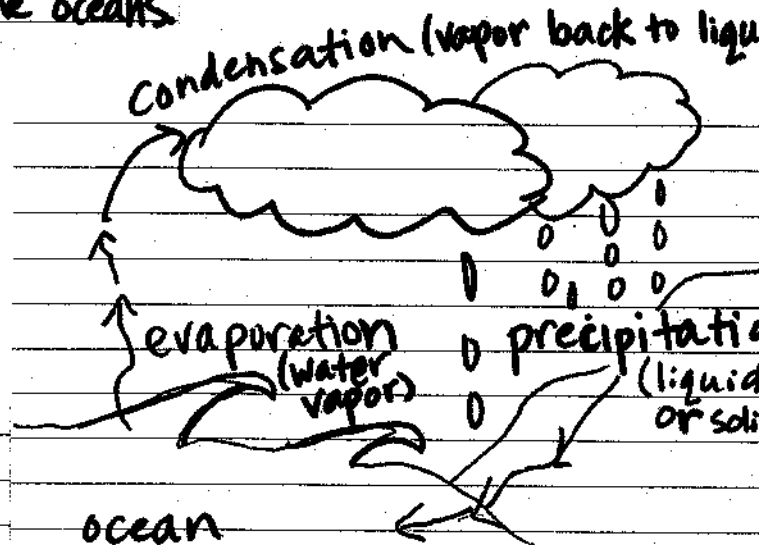 oceans
condensation (vapor back to
evaporation
(water
vapor)
precipitatio
(liquid
or soli
ocean